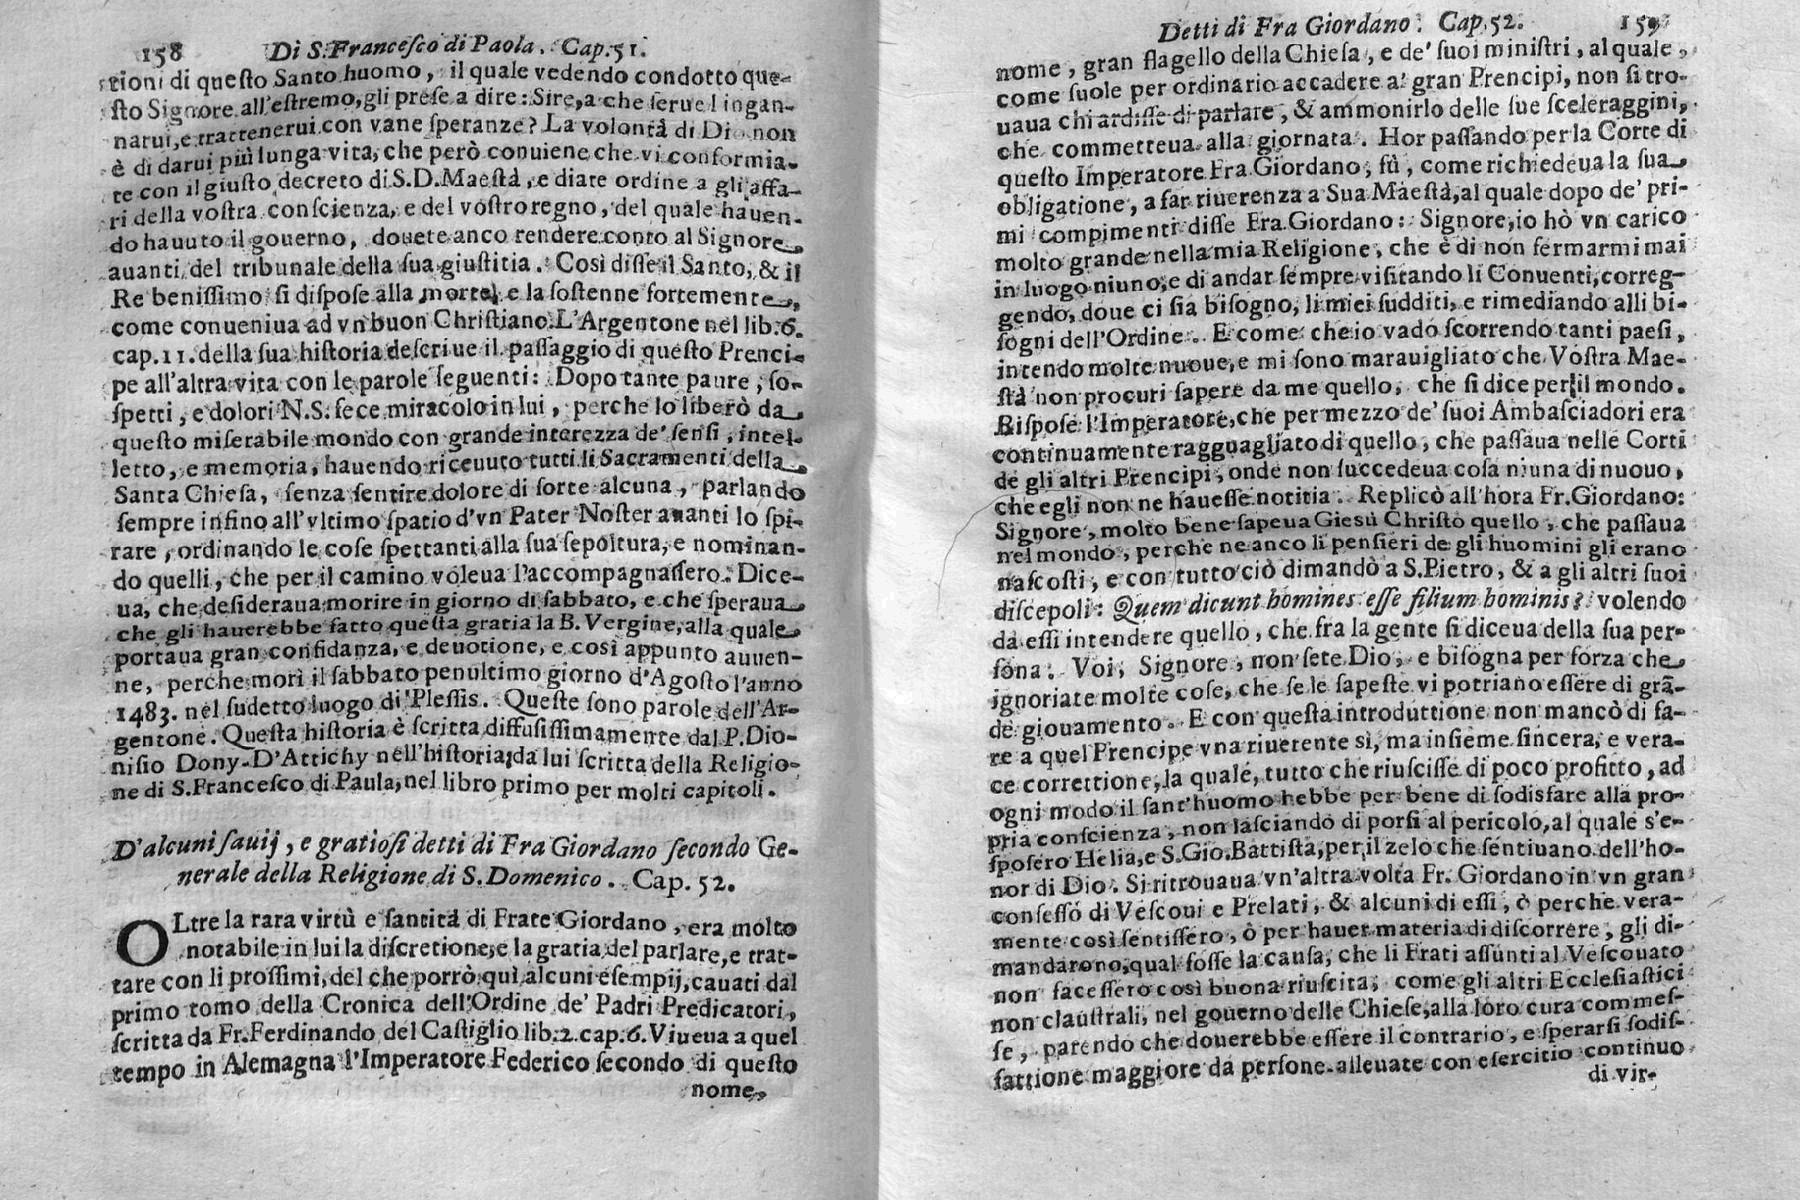 158 Di S. Franceſco di Paola. Cap. 51.
tioni di queſto Santo huomo, il quale vedendo condotto que-
ſto Signore all'eſtremo, gli preſe a dire: Sire, a che ſerue l ingan-
narui, e trattenerui con vane ſperanze? La volontà di Dio non
è di darui più lunga vita, che però conuiene che vi conformia-
te con il giuſto decreto di S.D. Maeſtà, e diate ordine a gli affa-
ri della voſtra conſcienza, e del voſtro regno, del quale hauen-
do hauuto il gouerno, douete anco rendere conto al Signore
auanti del tribunale della ſua giuſtitia. Così diſſe il Santo, & il
Re beniſſimo ſi diſpoſe alla morte, e la ſoſtenne fortemente,
come conueniua ad vn buon Chriſtiano. L'Argentone nel lib. 6.
cap. 11. della ſua hiſtoria deſcriue il paſſaggio di queſto Prenci-
pe all'altra vita con le parole ſeguenti: Dopo tante paure, ſo-
ſpetti, e dolori N.S. fece miracolo in lui, perche lo liberò da
queſto miſerabile mondo con grande interezza de' ſenſi, intel-
letto, e memoria, hauendo riceuuto tutti li Sacramenti della
Santa Chieſa, ſenza ſentire dolore di ſorte alcuna, parlando
ſempre infino all'vltimo ſpatio d'vn Pater Noſter auanti lo ſpi-
rare, ordinando le coſe ſpettanti alla ſua ſepoltura, e nominan-
do quelli, che per il camino voleua l'accompagnaſſero. Dice-
ua, che deſideraua morire in giorno di ſabbato, e che ſperaua
che gli hauerebbe fatto queſta gratia la B. Vergine, alla quale
portaua gran confidanza, e deuotione, e così appunto auuen-
ne, perche morì il ſabbato penultimo giorno d'Agoſto l'anno
1483. nel ſudetto luogo di Pleſſis. Queſte ſono parole dell'Ar-
gentone. Queſta hiſtoria è ſcritta diffuſiſſimamente dal P. Dio-
niſio Dony-D'Attichy nell'hiſtoria da lui ſcritta della Religio-
ne di S. Franceſco di Paula, nel libro primo per molti capitoli.
D'alcuni ſauij, e gratioſi detti di Fra Giordano ſecondo Ge-
nerale della Religione di S. Domenico. Cap. 52.
OLtre la rara virtù e ſantità di Frate Giordano, era molto
notabile in lui la diſcretione, e la gratia del parlare, e trat-
tare con li proſſimi, del che porrò quì alcuni eſempij, cauati dal
primo tomo della Cronica dell'Ordine de' Padri Predicatori,
ſcritta da Fr. Ferdinando del Caſtiglio lib. 2. cap. 6. Viueua a quel
tempo in Alemagna l'Imperatore Federico ſecondo di queſto
nome,
Detti di Fra Giordano. Cap. 52. 159
nome, gran flagello della Chieſa, e de' ſuoi miniſtri, al quale,
come ſuole per ordinario accadere a' gran Prencipi, non ſi tro-
uaua chi ardiſſe di parlare, & ammonirlo delle ſue ſceleraggini,
che commetteua alla giornata. Hor paſſando per la Corte di
queſto Imperatore Fra Giordano, fù, come richiedeua la ſua
obligatione, a far riuerenza a Sua Maeſtà, al quale dopo de' pri-
mi compimenti diſſe Fra Giordano: Signore, io hò vn carico
molto grande nella mia Religione, che è di non fermarmi mai
in luogo niuno, e di andar ſempre viſitando li Conuenti, correg-
gendo, doue ci ſia biſogno, li miei ſudditi, e rimediando alli bi-
ſogni dell'Ordine. E come che io vado ſcorrendo tanti paeſi,
intendo molte nuoue, e mi ſono marauigliato che Voſtra Mae-
ſtà non procuri ſapere da me quello, che ſi dice per il mondo.
Riſpoſe l'Imperatore, che per mezzo de' ſuoi Ambaſciadori era
continuamente ragguagliato di quello, che paſſaua nelle Corti
de gli altri Prencipi, onde non ſuccedeua coſa niuna di nuouo,
che egli non ne haueſſe notitia. Replicò all'hora Fr. Giordano:
Signore, molto bene ſapeua Gieſù Chriſto quello, che paſſaua
nel mondo, perche ne anco li penſieri de gli huomini gli erano
naſcoſti, e con tutto ciò dimandò a S. Pietro, & a gli altri ſuoi
diſcepoli: Quem dicunt homines eſſe filium hominis? volendo
da eſſi intendere quello, che fra la gente ſi diceua della ſua per-
ſona. Voi, Signore, non ſete Dio, e biſogna per forza che
ignoriate molte coſe, che ſe le ſapeſte vi potriano eſſere di grã-
de giouamento. E con queſta introduttione non mancò di fa-
re a quel Prencipe vna riuerente sì, ma inſieme ſincera, e vera-
ce correttione, la quale, tutto che riuſciſſe di poco profitto, ad
ogni modo il ſant'huomo hebbe per bene di ſodisfare alla pro-
pria conſcienza, non laſciando di porſi al pericolo, al quale s'e-
ſpoſero Helia, e S. Gio. Battiſta, per il zelo che ſentiuano dell'ho-
nor di Dio. Si ritrouaua vn'altra volta Fr. Giordano in vn gran
conſeſſo di Veſcoui e Prelati, & alcuni di eſſi, ò perche vera-
mente così ſentiſſero, ò per hauer materia di diſcorrere, gli di-
mandarono, qual foſſe la cauſa, che li Frati aſſunti al Veſcouato
non faceſſero così buona riuſcita, come gli altri Eccleſiaſtici
non clauſtrali, nel gouerno delle Chieſe, alla loro cura commeſ-
ſe, parendo che douerebbe eſſere il contrario, e ſperarſi ſodiſ-
fattione maggiore da perſone alleuate con eſercitio continuo
di vir-